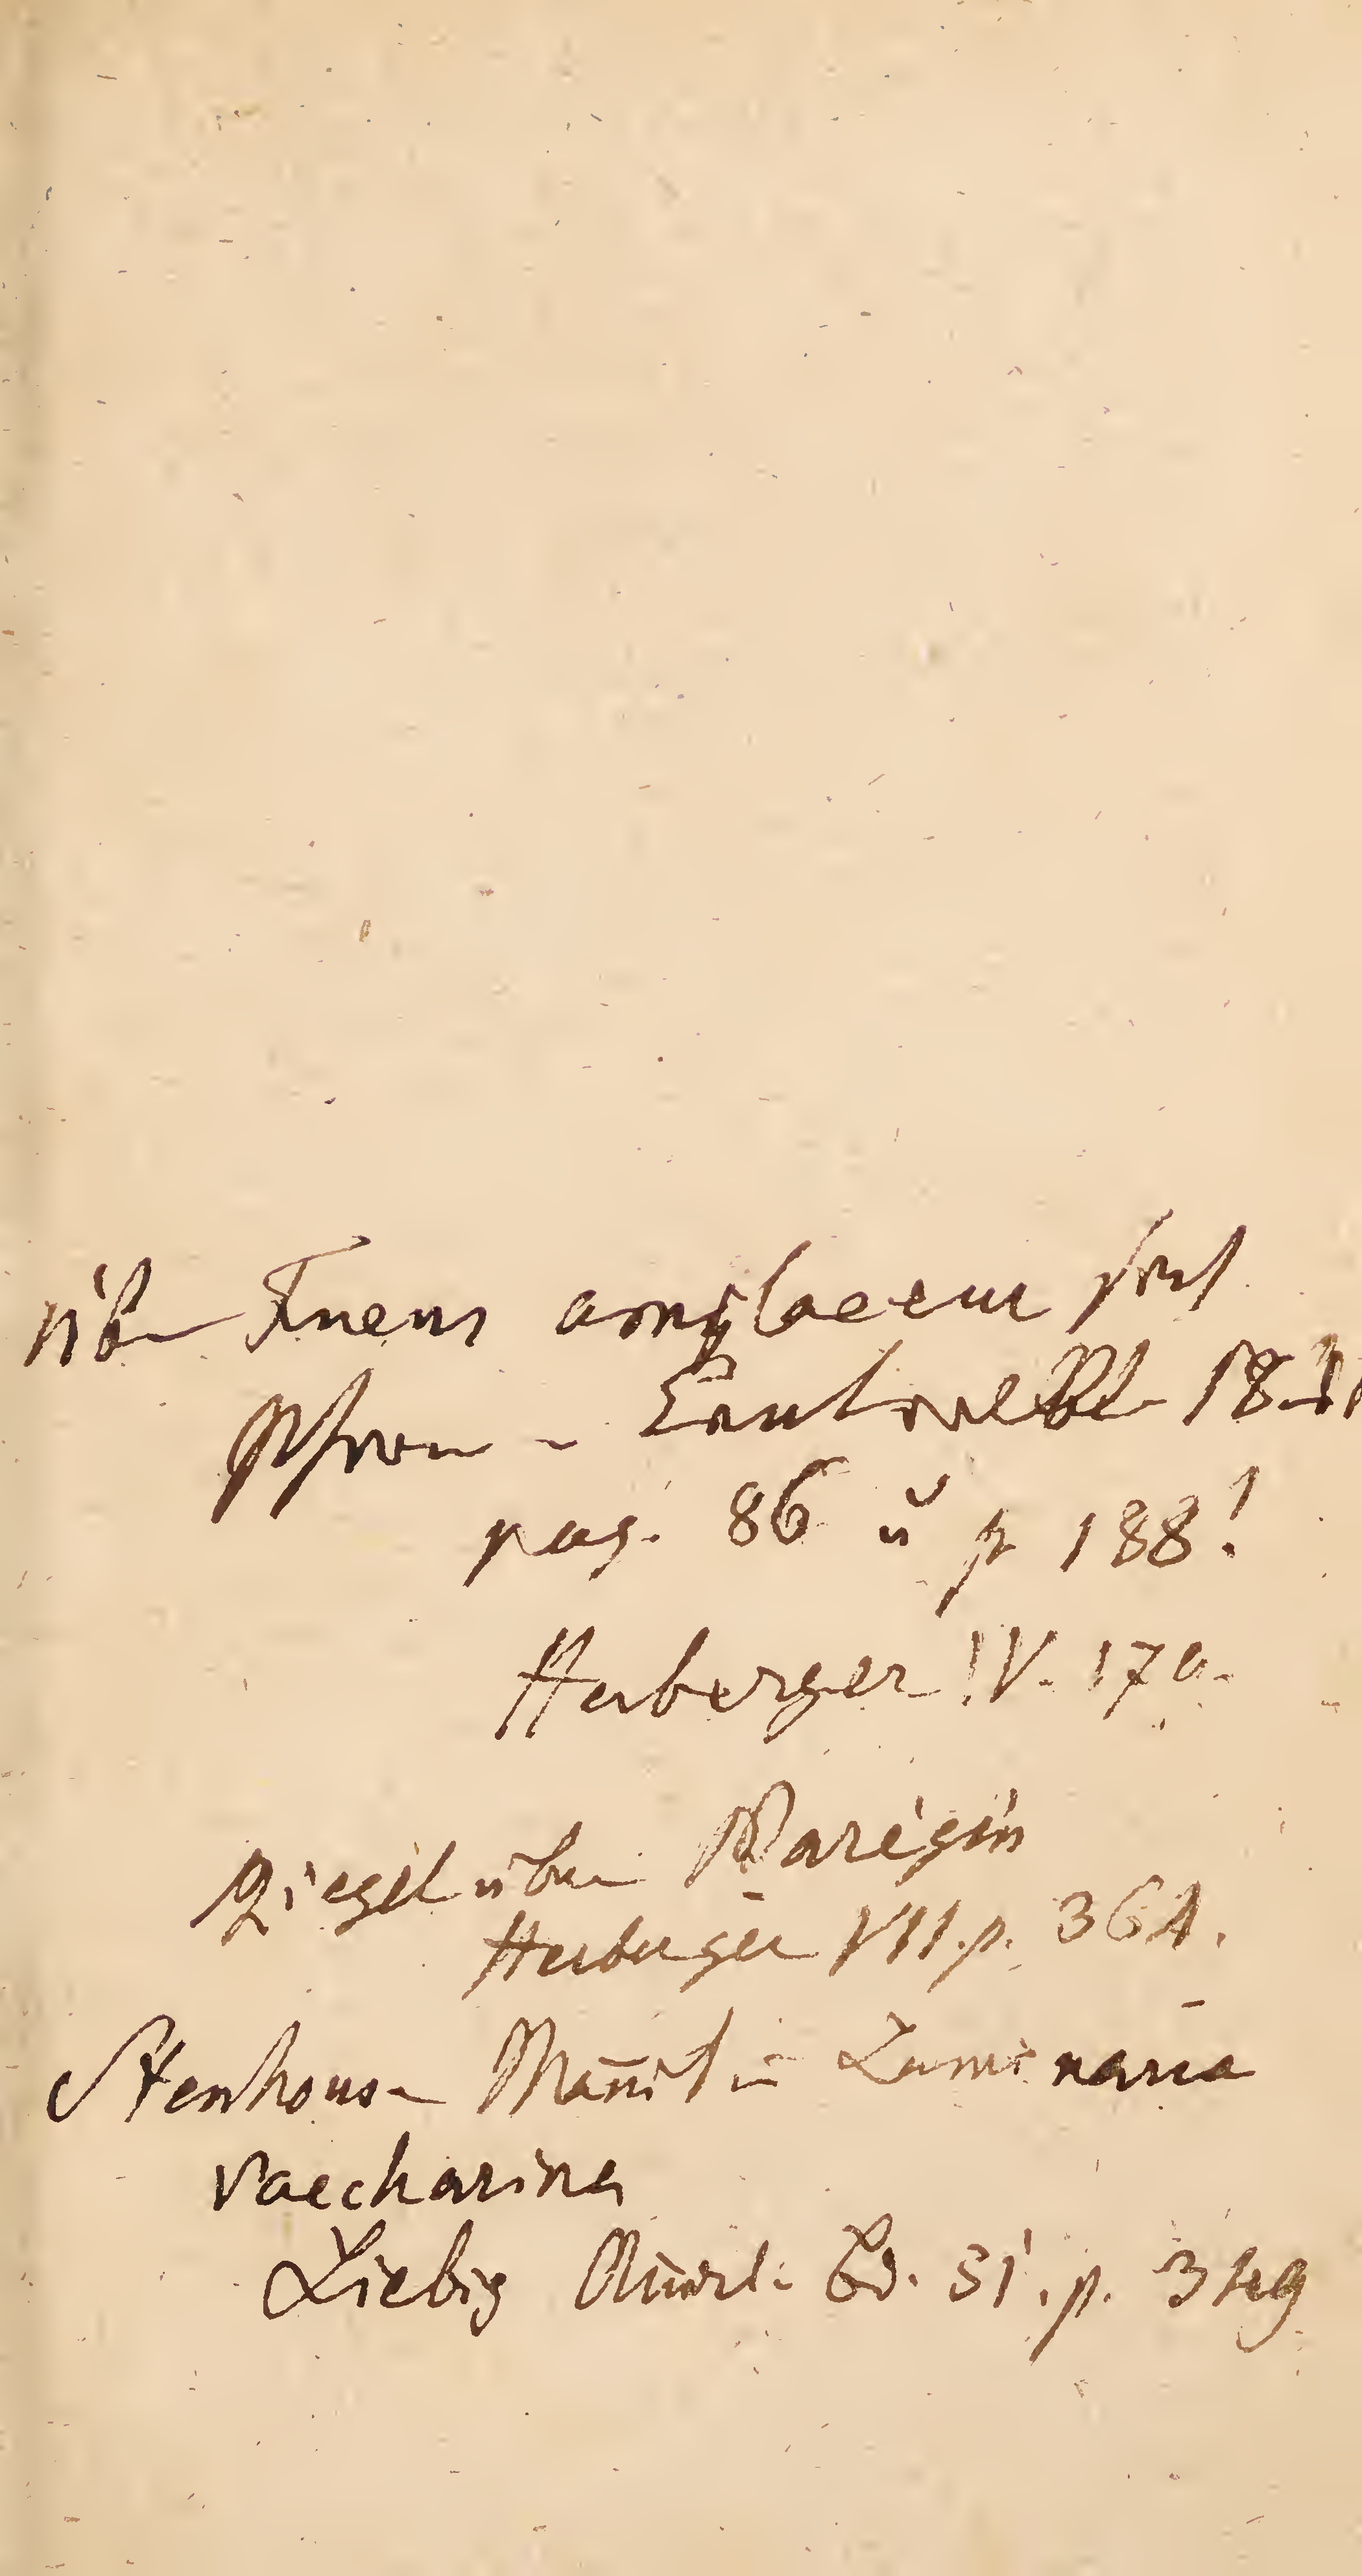 über Fucus amylaceus sush
Pharm. Centralbl. 18
pag. 86 u p 188!
Herberger IV. 170.
Ziegel über Barègin
Herberger VII. p. 364.
Stenhouse Mannit in Laminaria
saccharina
Liebig Annal. Bd. 51. p. 349